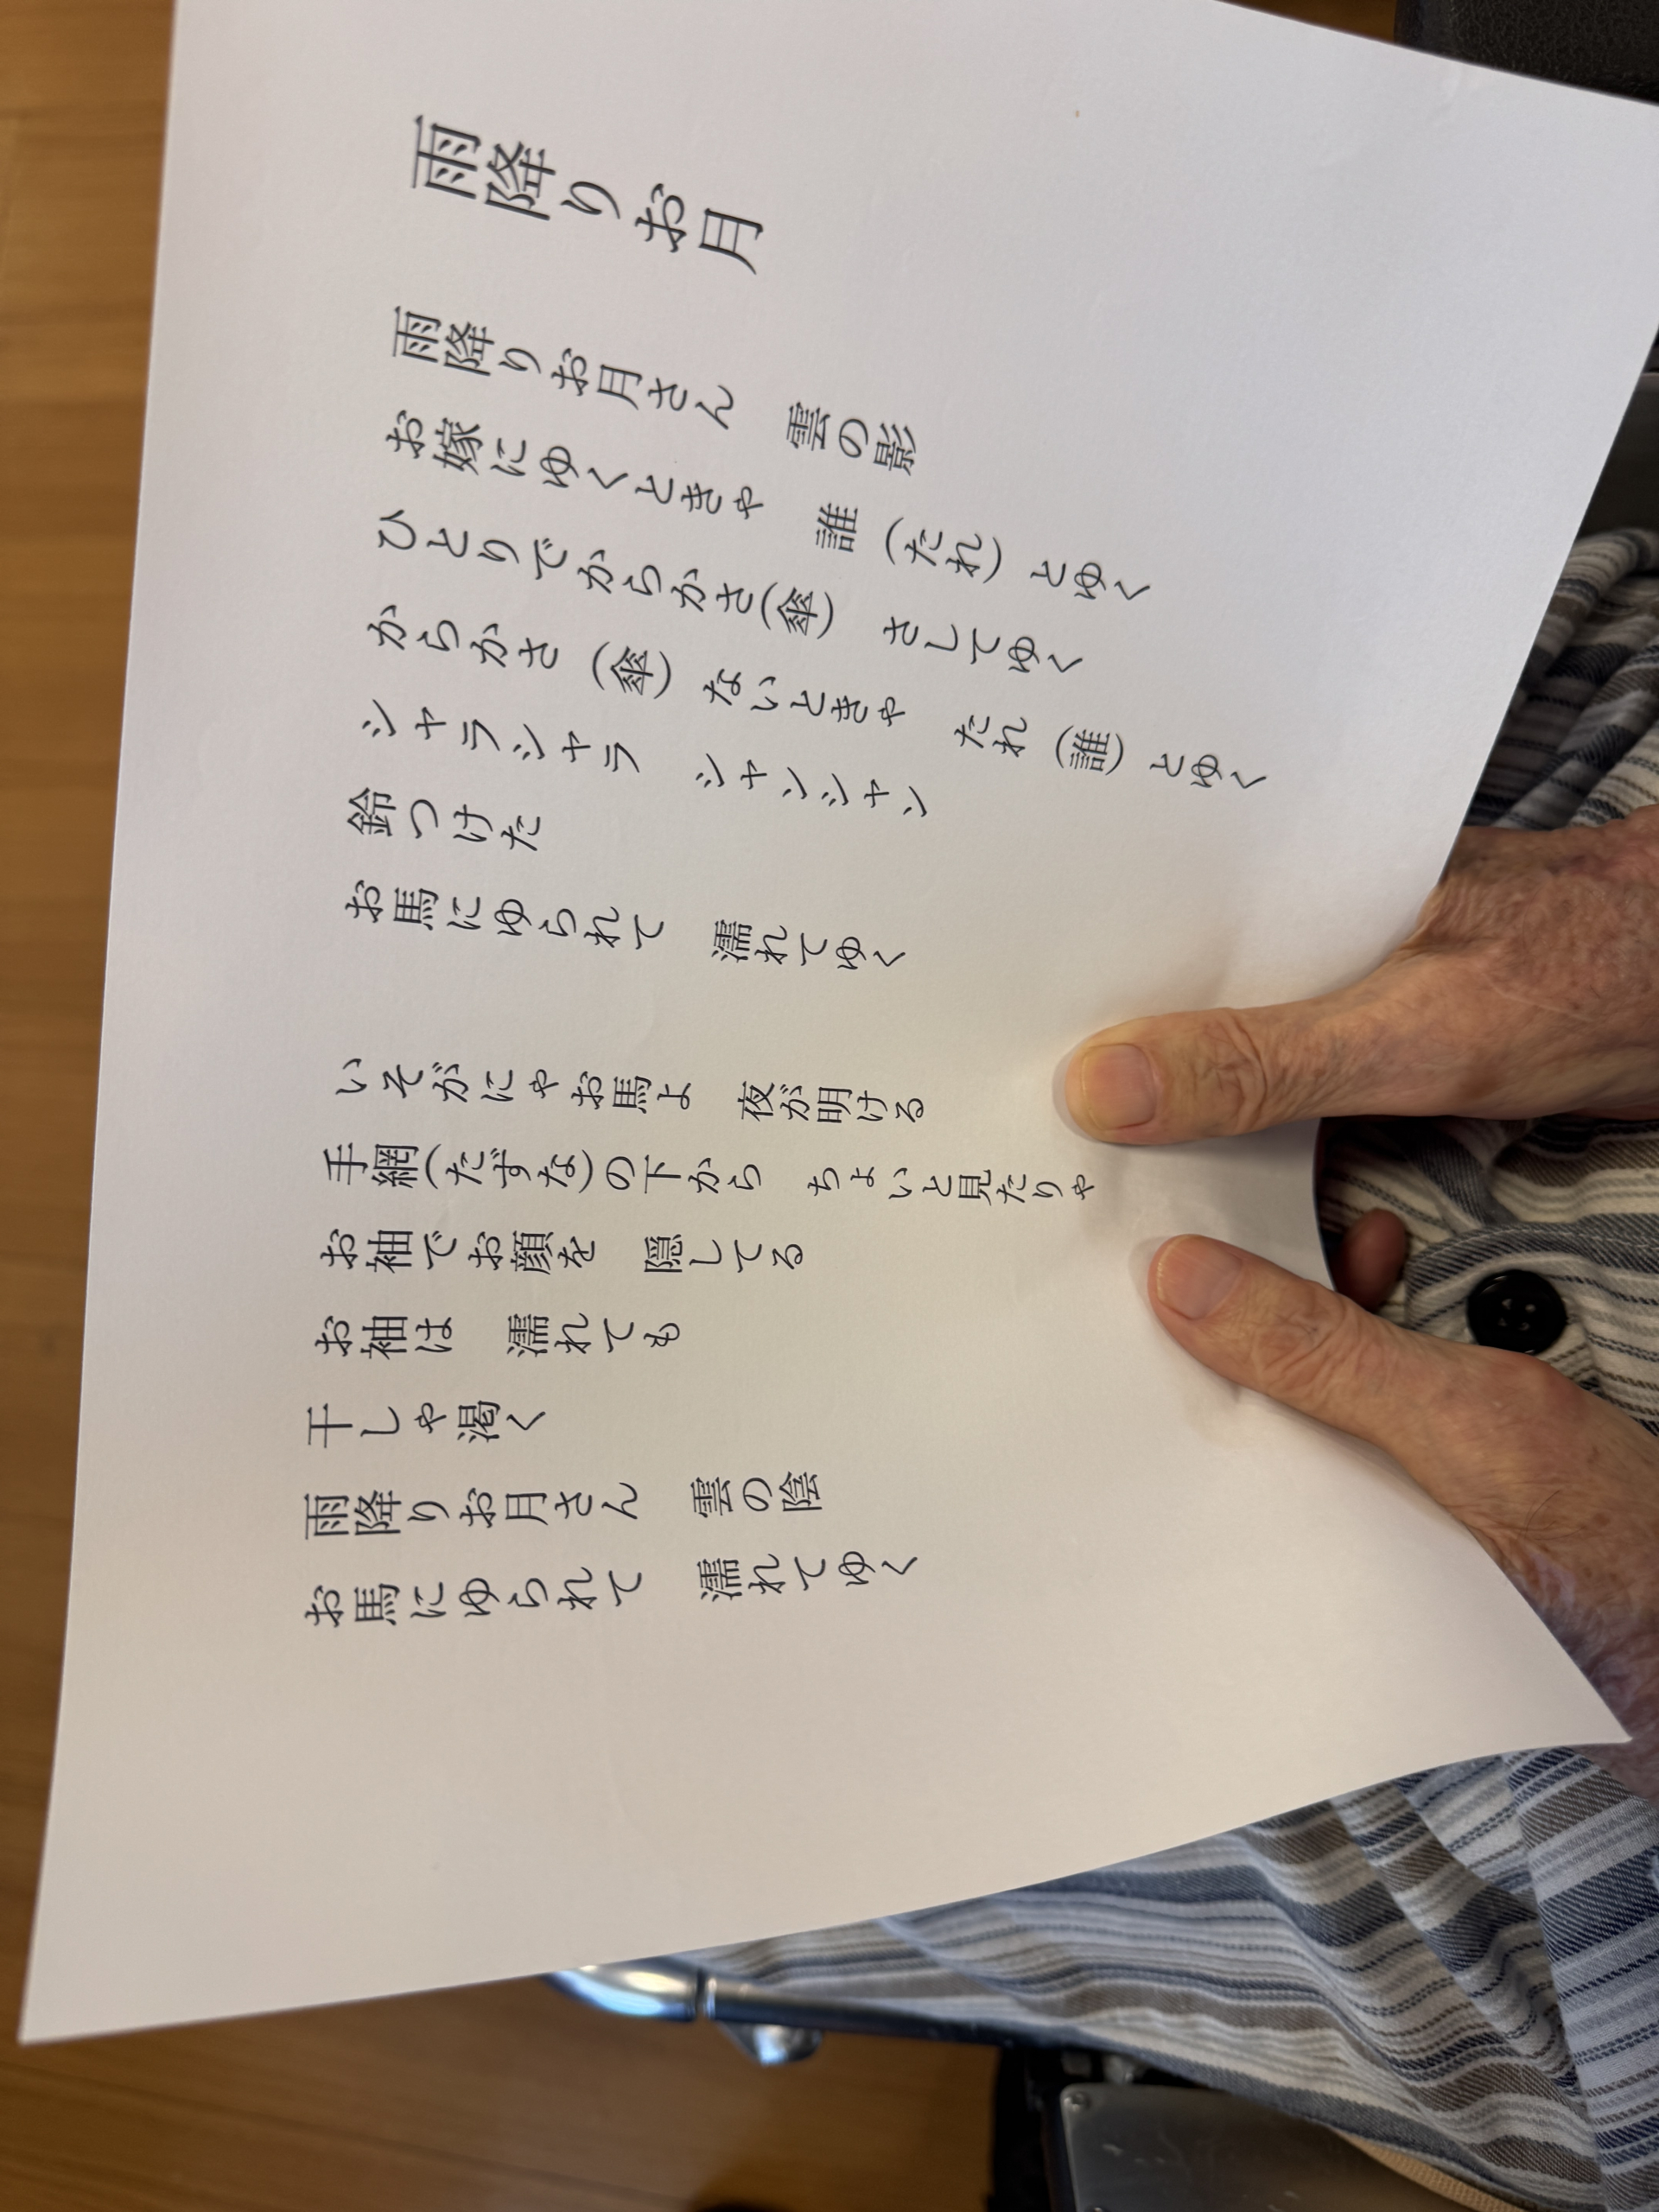 雨降りお月
雨降りお月さん　雲の影
お嫁にゆくときゃ　誰（たれ）とゆく
ひとりでからかさ(傘)　さしてゆく
からかさ（傘）ないときゃ　たれ（誰）とゆく
シャラシャラ　シャンシャン
鈴つけた
お馬にゆられて　濡れてゆく
いそがにゃお馬よ　夜が明ける
手網(たずな)の下から　ちょいと見たりゃ
お袖でお顔を　隠してる
お袖は　濡れても
干しゃ渇く
雨降りお月さん　雲の陰
お馬にゆられて　濡れてゆく